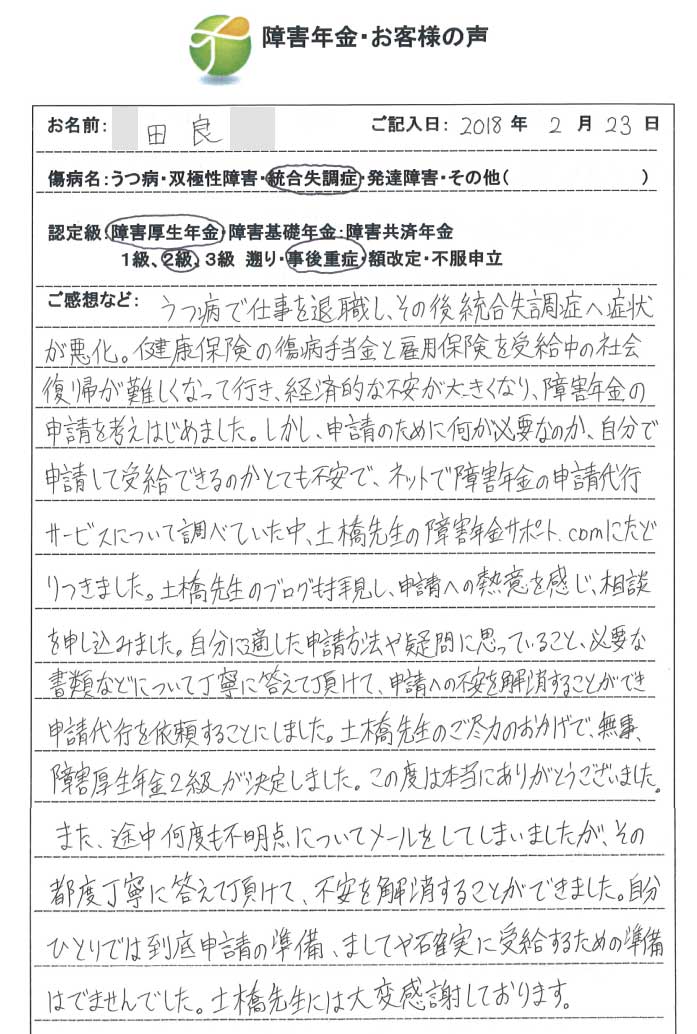 障害年金・お客様の声
お名前: 田良 ご記入日: 2018 年 2 月 23 日
傷病名:うつ病・双極性障害・統合失調症・発達障害・その他( )
認定級:障害厚生年金・障害基礎年金:障害共済年金
1級、2級、3級 遡り・事後重症・額改定・不服申立
ご感想など: うつ病で仕事を退職し、その後統合失調症へ症状
が悪化。健康保険の傷病手当金と雇用保険を受給中の社会
復帰が難しくなって行き、経済的な不安が大きくなり、障害年金の
申請を考えはじめました。しかし、申請のために何が必要なのか、自分で
申請して受給できるのかとても不安で、ネットで障害年金の申請代行
サービスについて調べていた中、土橋先生の障害年金サポート.comにたど
りつきました。土橋先生のブログも拝見し、申請への熱意を感じ、相談
を申し込みました。自分に適した申請方法や疑問に思っていること、必要な
書類などについて丁寧に答えて頂けて、申請への不安を解消することができ
申請代行を依頼することにしました。土橋先生のご尽力のおかげで、無事、
障害厚生年金2級が決定しました。この度は本当にありがとうございました。
また、途中何度も不明点についてメールをしてしまいましたが、その
都度丁寧に答えて頂けて、不安を解消することができました。自分
ひとりでは到底申請の準備、ましてや確実に受給するための準備
はでませんでした。土橋先生には大変感謝しております。